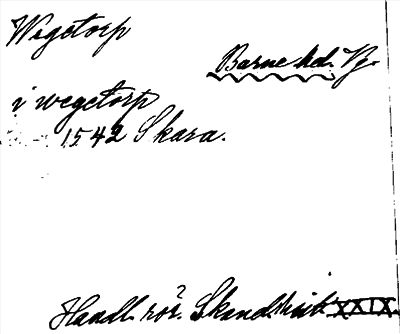 Wegetorp
Barne hd. Vg.
i wegetorp
1542 Skara.
Handl. rör. Skand. hist. XXIX